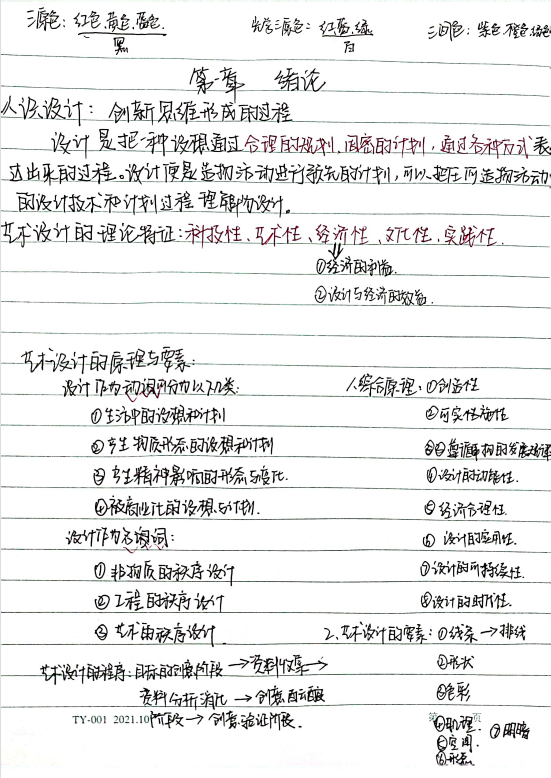 三原色：红色、黄色、蓝色.
黑
光学三原色：红、蓝、绿
白
三间色：紫色、橙色、绿色
第一章 绪论
认识设计：创新思维形成的过程
设计是把一种设想通过合理的规划、周密的计划，通过各种方式表
达出来的过程。设计便是造物活动进行预先的计划，可以把任何造物活动
的设计技术和计划过程理解为设计。
艺术设计的理论特征：科技性、艺术性、经济性、文化性、实践性.
①经济的利益.
②设计与经济的效益.
艺术设计的原理与要素：
设计作为动词可分为以下几类：
①生活中的设想和计划
②产生物质形态的设想和计划
③产生精神影响的形态与变化.
④被商业化的设想与计划.
设计作为名词：
①非物质的秩序设计
②工程的秩序设计
③艺术的秩序设计
1.综合原理：①创造性
②可实施性
③遵循事物的发展规律
④设计的功能性
⑤经济合理性.
⑥设计的应用性.
⑦设计的可持续性.
⑧设计的时代性.
2.艺术设计的要素：①线条→排线
②形状
③色彩
④肌理.
⑤空间.
⑥形态
⑦明暗
艺术设计的程序：目标的创意阶段→资料收集→
资料分析消化→创意酝酿
阶段→创意验证阶段.
TY-001 2021.10
第 页